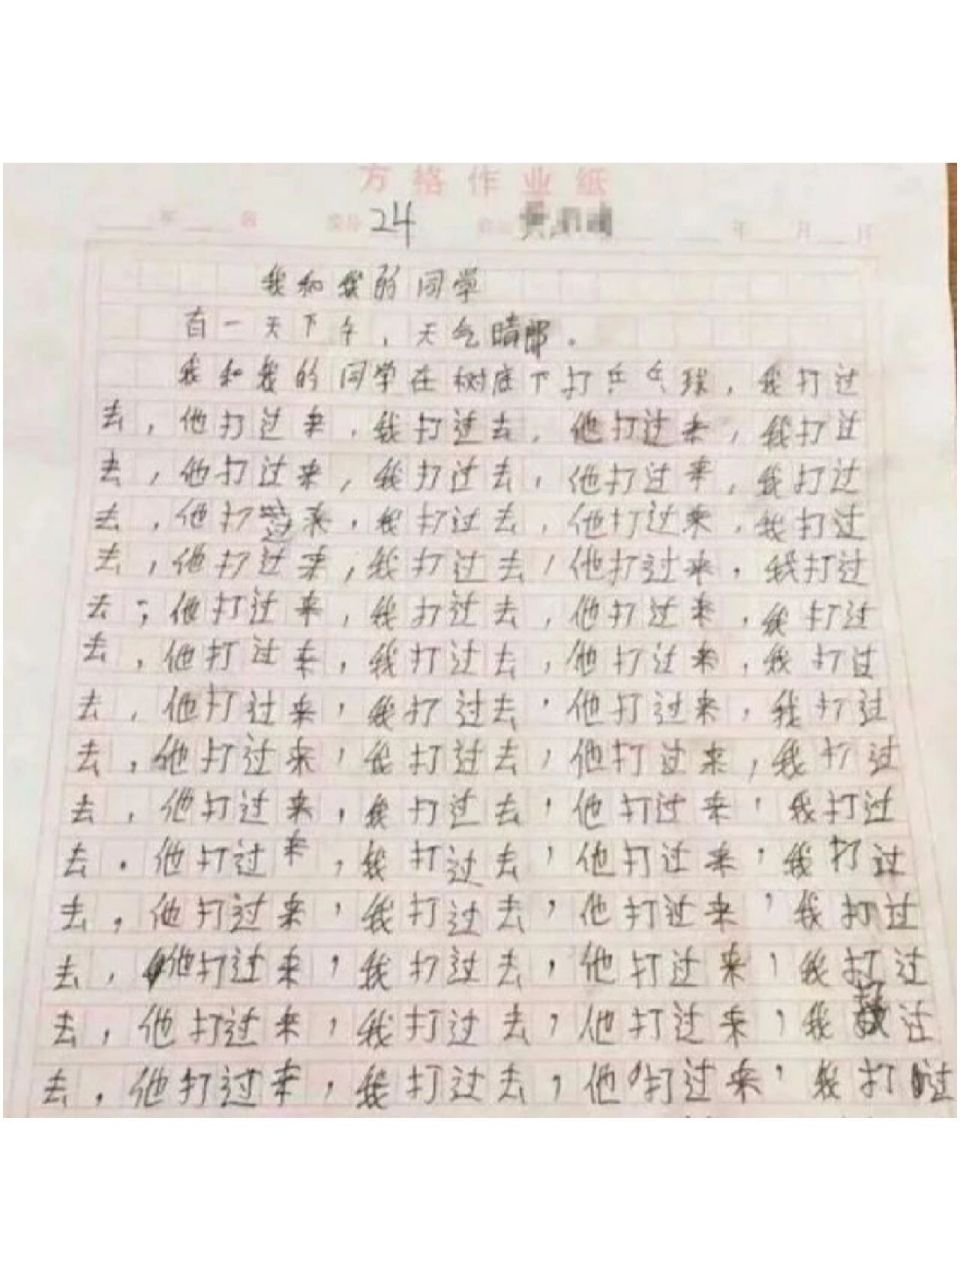 方格作业纸
年 班 24 年 月 日
我和我的同学
有一天下午，天气晴郎。
我和我的同学在树底下打乒乓球，我打过
去，他打过来，我打过去，他打过来，我打过
去，他打过来，我打过去，他打过来，我打过
去，他打过来，我打过去，他打过来，我打过
去，他打过来，我打过去，他打过来，我打过
去，他打过来，我打过去，他打过来，我打过
去，他打过来，我打过去，他打过来，我打过
去，他打过来，我打过去，他打过来，我打过
去，他打过来，我打过去，他打过来，我打过
去，他打过来，我打过去，他打过来，我打过
去。他打过来，我打过去，他打过来，我打过
去，他打过来，我打过去，他打过来，我打过
去，他打过来，我打过去，他打过来，我打过
去，他打过来，我打过去，他打过来，我过
去，他打过来，我打过去，他打过来，我打过